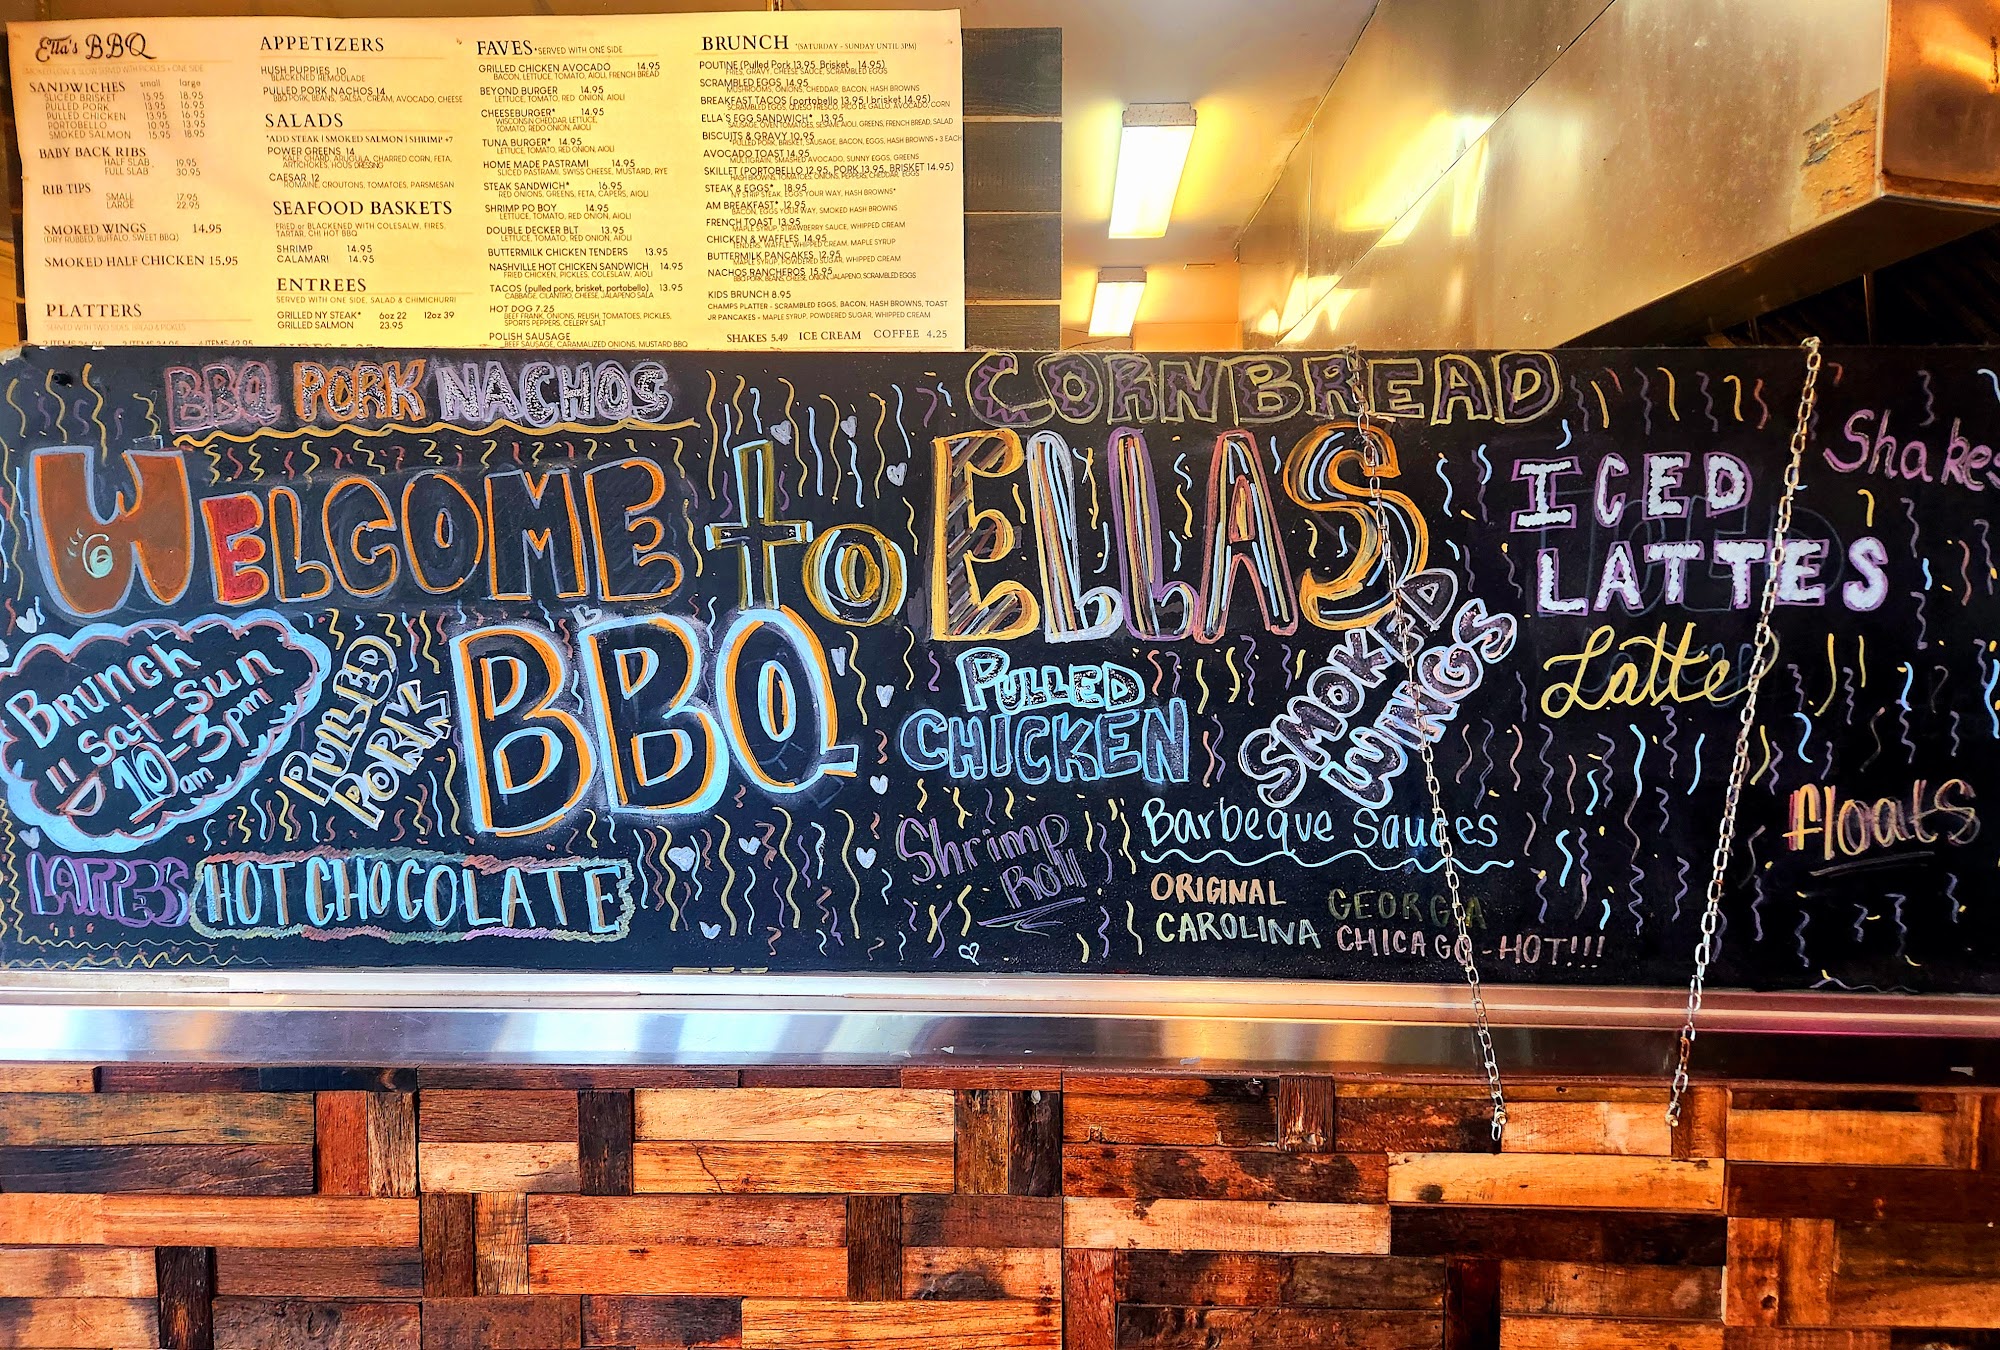 Ella's BBQ
SMOKED LOW & SLOW SERVED WITH PICKLES + ONE SIDE
SANDWICHES small large
SLICED BRISKET 15.95 18.95
PULLED PORK 13.95 16.95
PULLED CHICKEN 13.95 16.95
PORTOBELLO 10.95 13.95
SMOKED SALMON 15.95 18.95
BABY BACK RIBS
HALF SLAB 19.95
FULL SLAB 30.95
RIB TIPS
SMALL 17.95
LARGE 22.95
SMOKED WINGS 14.95
(DRY RUBBED, BUFFALO, SWEET BBQ)
SMOKED HALF CHICKEN 15.95
PLATTERS
SERVED WITH TWO SIDES, BREAD & PICKLES
APPETIZERS
HUSH PUPPIES 10
BLACKENED REMOULADE
PULLED PORK NACHOS 14
BBQ PORK, BEANS, SALSA, CREAM, AVOCADO, CHEESE
SALADS
*ADD STEAK | SMOKED SALMON | SHRIMP +7
POWER GREENS 14
KALE, CHARD, ARUGULA, CHARRED CORN, FETA,
ARTICHOKES, HOUS DRESSING
CAESAR 12
ROMAINE, CROUTONS, TOMATOES, PARSMESAN
SEAFOOD BASKETS
FRIED or BLACKENED WITH COLESALW, FIRES,
TARTAR, CHI HOT BBQ
SHRIMP 14.95
CALAMARI 14.95
ENTREES
SERVED WITH ONE SIDE, SALAD & CHIMICHURRI
GRILLED NY STEAK* 6oz 22 12oz 39
GRILLED SALMON 23.95
FAVES *SERVED WITH ONE SIDE
GRILLED CHICKEN AVOCADO 14.95
BACON, LETTUCE, TOMATO, AIOLI, FRENCH BREAD
BEYOND BURGER 14.95
LETTUCE, TOMATO, RED ONION, AIOLI
CHEESEBURGER* 14.95
WISCONSIN CHEDDAR, LETTUCE,
TOMATO, REDO ONION, AIOLI
TUNA BURGER* 14.95
LETTUCE, TOMATO, RED ONION, AIOLI
HOME MADE PASTRAMI 14.95
SLICED PASTRAMI, SWISS CHEESE, MUSTARD, RYE
STEAK SANDWICH* 16.95
RED ONIONS, GREENS, FETA, CAPERS, AIOLI
SHRIMP PO BOY 14.95
LETTUCE, TOMATO, RED ONION, AIOLI
DOUBLE DECKER BLT 13.95
LETTUCE, TOMATO, RED ONION, AIOLI
BUTTERMILK CHICKEN TENDERS 13.95
NASHVILLE HOT CHICKEN SANDWICH 14.95
FRIED CHICKEN, PICKLES, COLESLAW, AIOLI
TACOS (pulled pork, brisket, portobello) 13.95
CABBAGE, CILANTRO, CHEESE, JALAPENO SALA
HOT DOG 7.25
BEEF FRANK, ONIONS, RELISH, TOMATOES, PICKLES,
SPORTS PEPPERS, CELERY SALT
POLISH SAUSAGE
BEEF SAUSAGE, CARAMALIZED ONIONS, MUSTARD BBQ
BRUNCH *(SATURDAY - SUNDAY UNTIL 3PM)
POUTINE (Pulled Pork 13.95 Brisket 14.95)
FRIES, GRAVY, CHEESE SAUCE, SCRAMBLED EGGS
SCRAMBLED EGGS 14.95
MUSHROOMS, ONIONS, CHEDDAR, BACON, HASH BROWNS
BREAKFAST TACOS (portobello 13.95 | brisket 14.95)
SCRAMBLED EGGS, QUESO FRESCO, PICO DE GALLO, AVOCADO, CORN
ELLA'S EGG SANDWICH* 13.95
SAUSAGE, OVEN TOMATOES, SESAME AIOLI, GREENS, FRENCH BREAD, SALAD
BISCUITS & GRAVY 10.95
PULLED PORK, BRISKET, SAUSAGE, BACON, EGGS, HASH BROWNS + 3 EACH
AVOCADO TOAST 14.95
MULTIGRAIN, SMASHED AVOCADO, SUNNY EGGS, GREENS
SKILLET (PORTOBELLO 12.95, PORK 13.95, BRISKET 14.95)
HASH BROWNS, TOMATOES, ONIONS, PEPPERS, CHEDDAR, EGGS
STEAK & EGGS* 18.95
NY STRIP STEAK, EGGS YOUR WAY, HASH BROWNS*
AM BREAKFAST* 12.95
BACON, EGGS YOUR WAY, SMOKED HASH BROWNS
FRENCH TOAST 13.95
MAPLE SYRUP, STRAWBERRY SAUCE, WHIPPED CREAM
CHICKEN & WAFFLES 14.95
TENDERS, WAFFLE, WHIPPED CREAM, MAPLE SYRUP
BUTTERMILK PANCAKES 12.95
MAPLE SYRUP, POWDERED SUGAR, WHIPPED CREAM
NACHOS RANCHEROS 15.95
BBQ PORK, BEANS, CHEESE, ONION, JALAPENO, SCRAMBLED EGGS
KIDS BRUNCH 8.95
CHAMPS PLATTER - SCRAMBLED EGGS, BACON, HASH BROWNS, TOAST
JR PANCAKES - MAPLE SYRUP, POWDERED SUGAR, WHIPPED CREAM
SHAKES 5.49 ICE CREAM COFFEE 4.25
BBQ PORK NACHOS
CORNBREAD
WELCOME to ELLAS
BBQ
BRUNCH
Sat-Sun
10-3pm
am
PULLED
PORK
LATTE'S
HOT CHOCOLATE
PULLED
CHICKEN
SMOKED
WINGS
Shrimp
Roll
Barbeque Sauces
ORIGINAL GEORGIA
CAROLINA CHICAGO-HOT!!!
ICED
LATTES
Latte
Shakes
floats